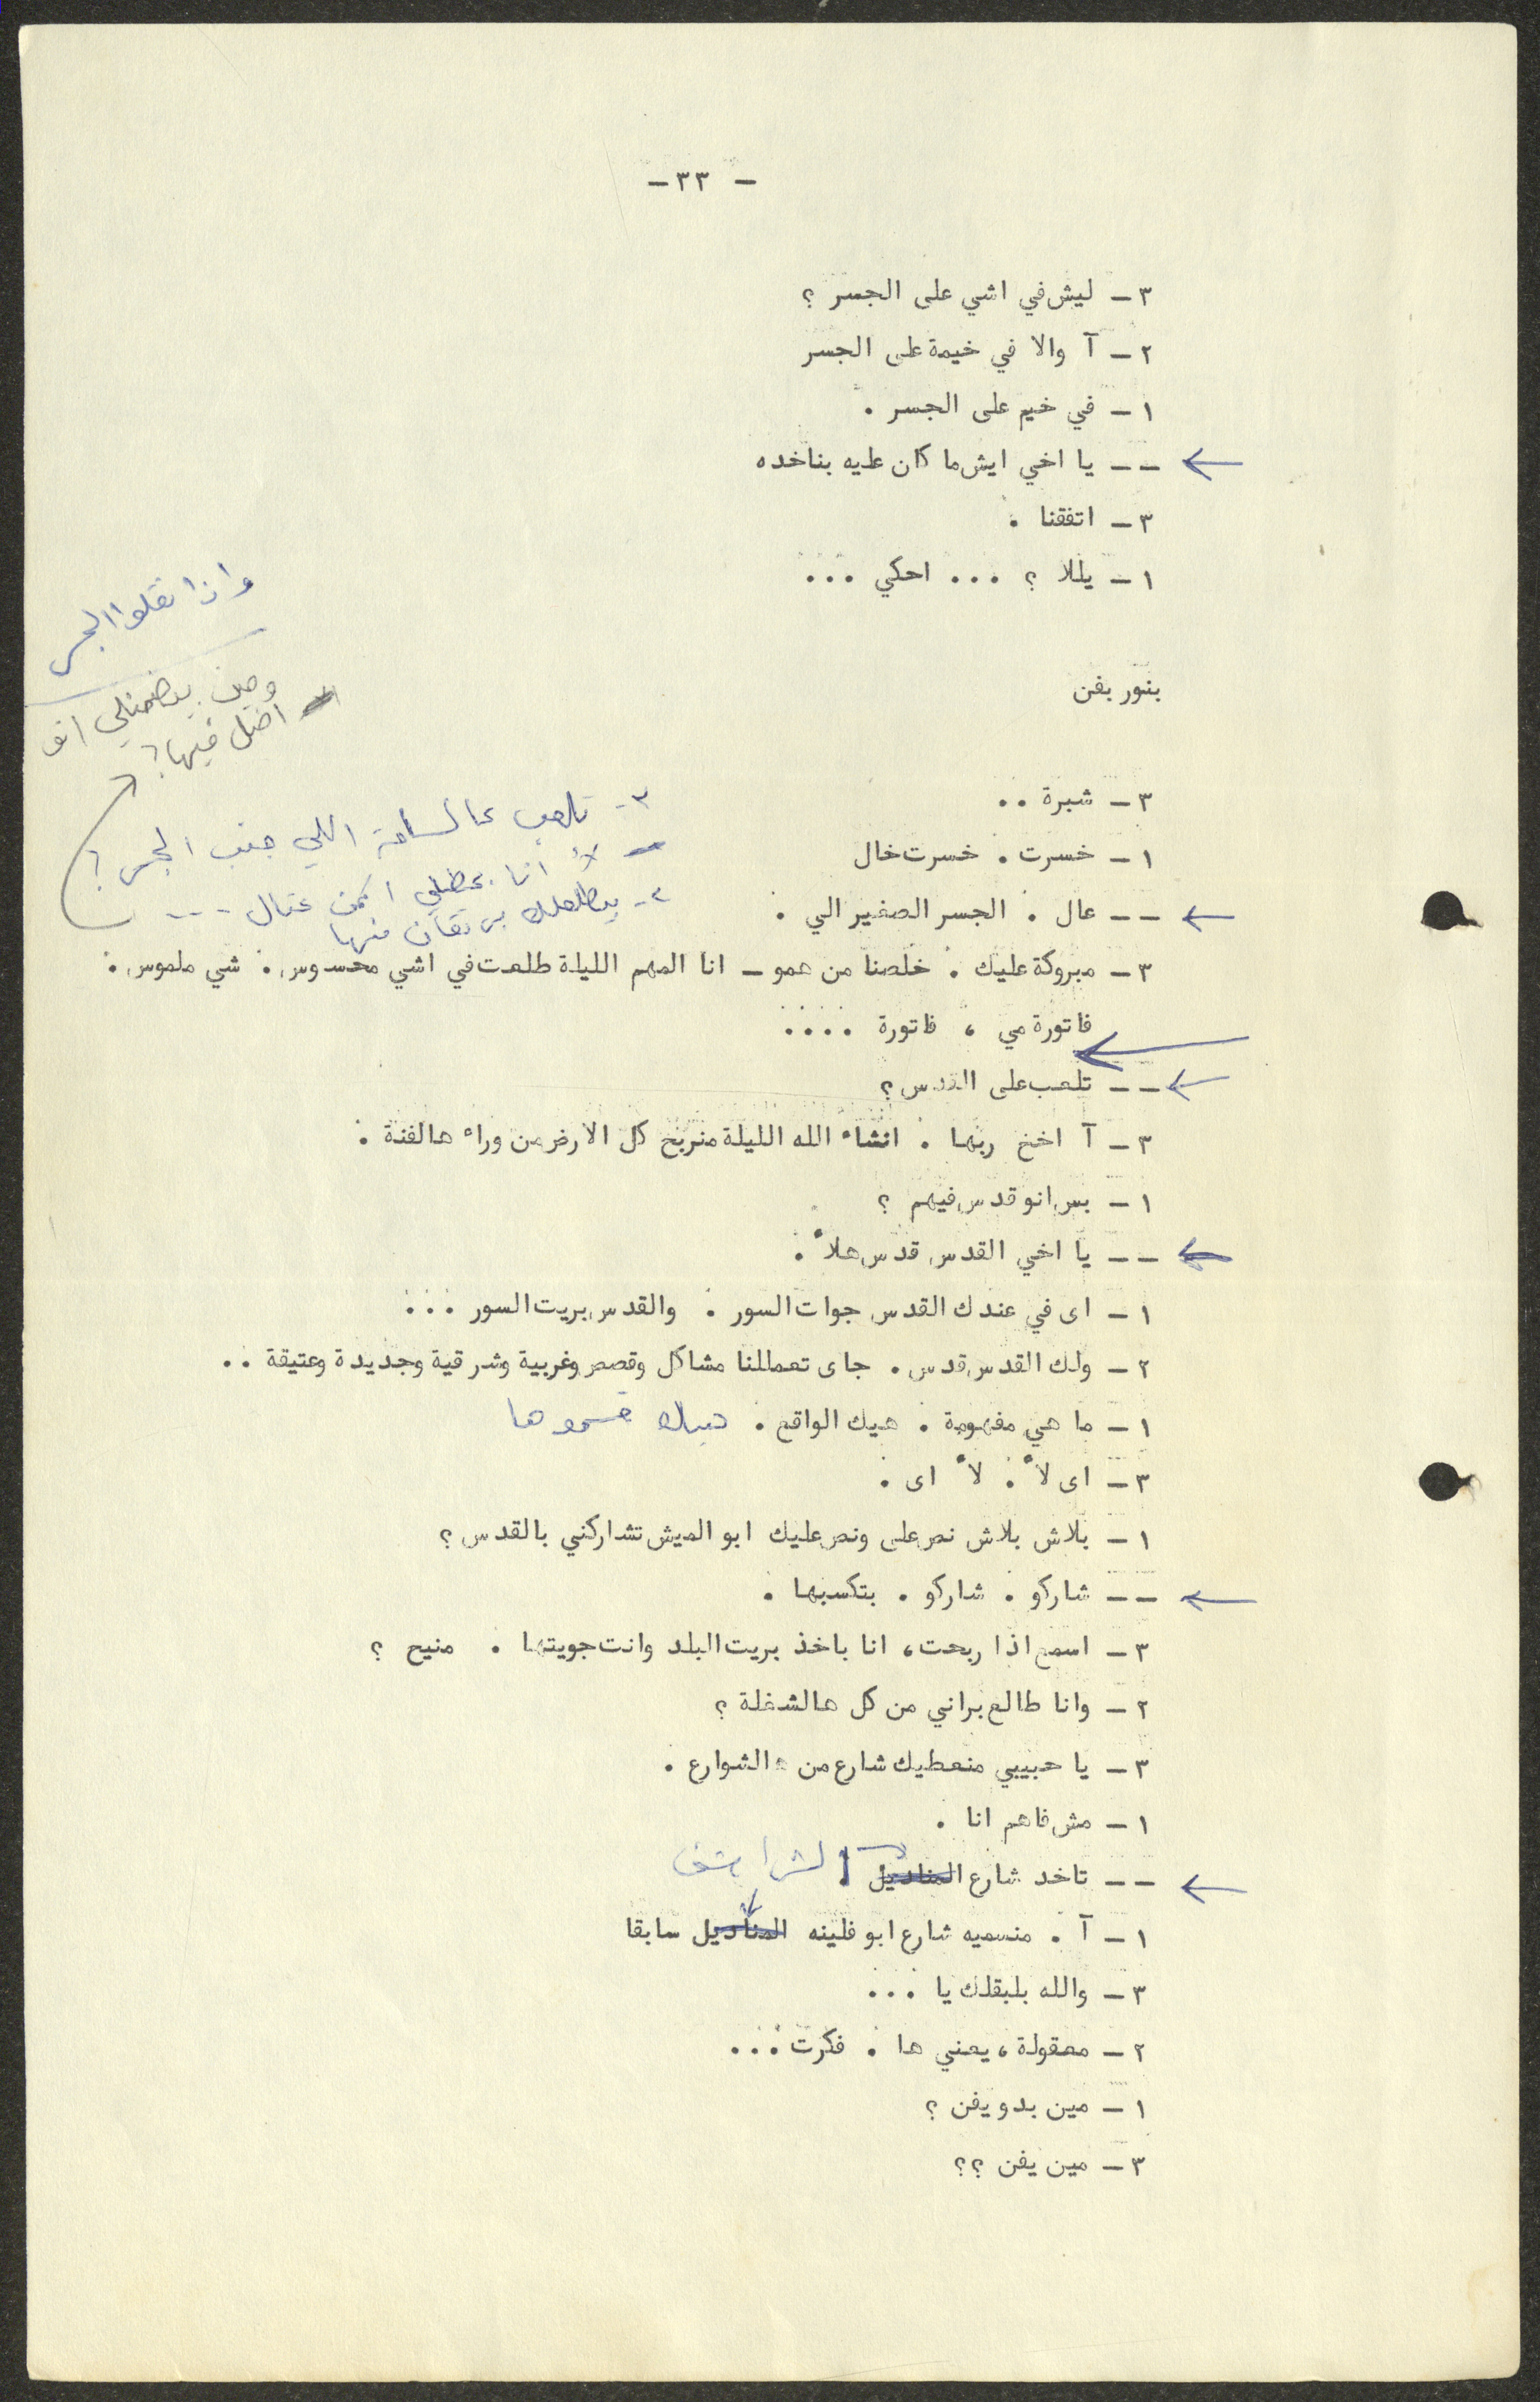 - ٣٣ -
٣ - ليش في اشي على الجسر ؟
٢ - آ والا في خيمة على الجسر
١ - في خيم على الجسر .
-- يا اخي ايش ما كان عليه بناخده
٣ - اتفقنا .
١ - يللا ؟ ... احكي ...
واذا نقلوا الجسر
ومين بيضمنلي انو
اضل فيها ؟
بنور بفن
٣ - شبرة ..
١ - خسرت . خسرت خال
٣ - تلعب عالساحة اللي جنب الجسر ؟
لأ انا بحطيلي اكمن عتال ...
٢ - بيطلعلك برتقان منها
-- عال . الجسر الصغير الي .
٣ - مبروكة عليك . خلصنا من همو - انا المهم الليلة طلعت في اشي محسوس . شي ملموس .
فاتورة مي ، فاتورة ....
-- تلعب على القدس ؟
٣ - آ اخخ ربها . انشاء الله الليلة منربح كل الارض من وراء هالفنة .
١ - بس انو قدس فيهم ؟
-- يا اخي القدس قدس هلأ .
١ - اى في عندك القدس جوات السور . والقدس بريت السور ...
٢ - ولك القدس قدس . جاى تعمللنا مشاكل وقصص وغربية وشرقية وجديدة وعتيقة ..
١ - ما هي مفهومة . هيك الواقع . هيك قسموها
٣ - اى لأ . لأ اى .
١ - بلاش بلاش نص على ونص عليك ابو الميش تشاركني بالقدس ؟
-- شاركو . شاركو . بتكسبها .
٣ - اسمع اذا ربحت ، انا باخذ بريت البلد وانت جويتها . منيح ؟
٢ - وانا طالع براني من كل هالشغلة ؟
٣ - يا حبيبي منعطيك شارع من هالشوارع .
١ - مش فاهم انا .
-- تاخد شارع المناديل . الشراشف
١ - آ . منسميه شارع ابو فلينه المناديل سابقا
٣ - والله بلبقلك يا ...
٢ - معقولة ، يعني ها . فكرت ...
١ - مين بدو يفن ؟
٣ - مين يفن ؟؟